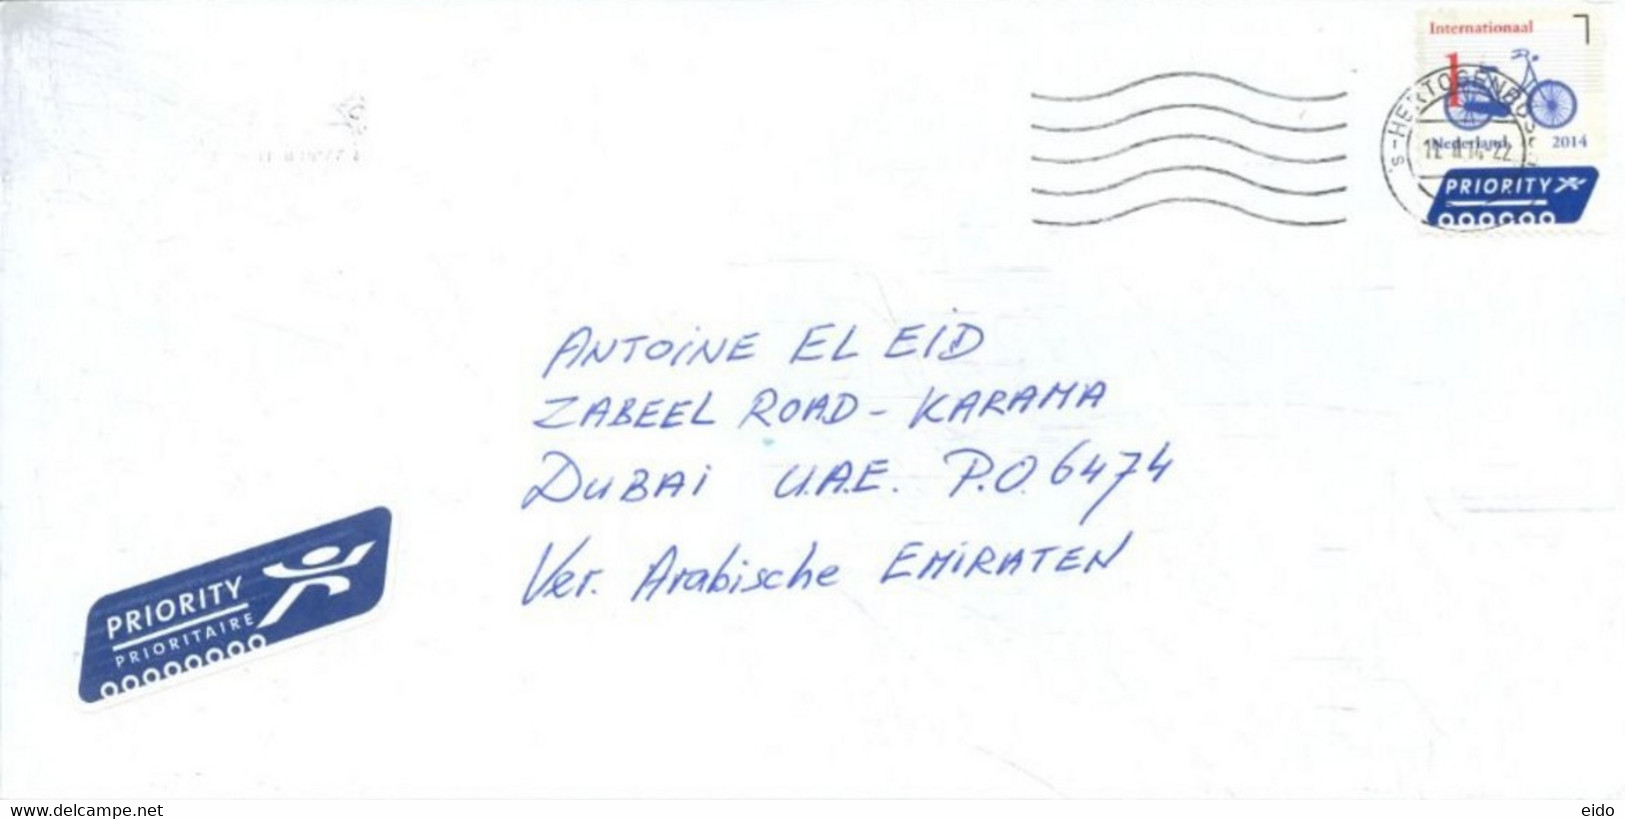 Internationaal
1
Nederland 2014
's-HERTOGENBOSCH
PRIORITY
ANTOINE EL EID
ZABEEL ROAD - KARAMA
DUBAI U.A.E. P.O. 6474
Ver. Arabische EMIRATEN
PRIORITY
PRIORITAIRE
www.delcampe.net
eido